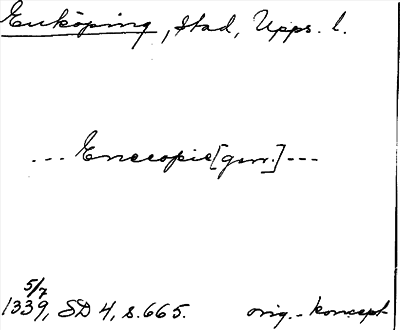 Enköping, stad, Upps. l.
--- Enecopie [gen.] ---
5/7
1339, SD 4, s. 665. orig.-koncept